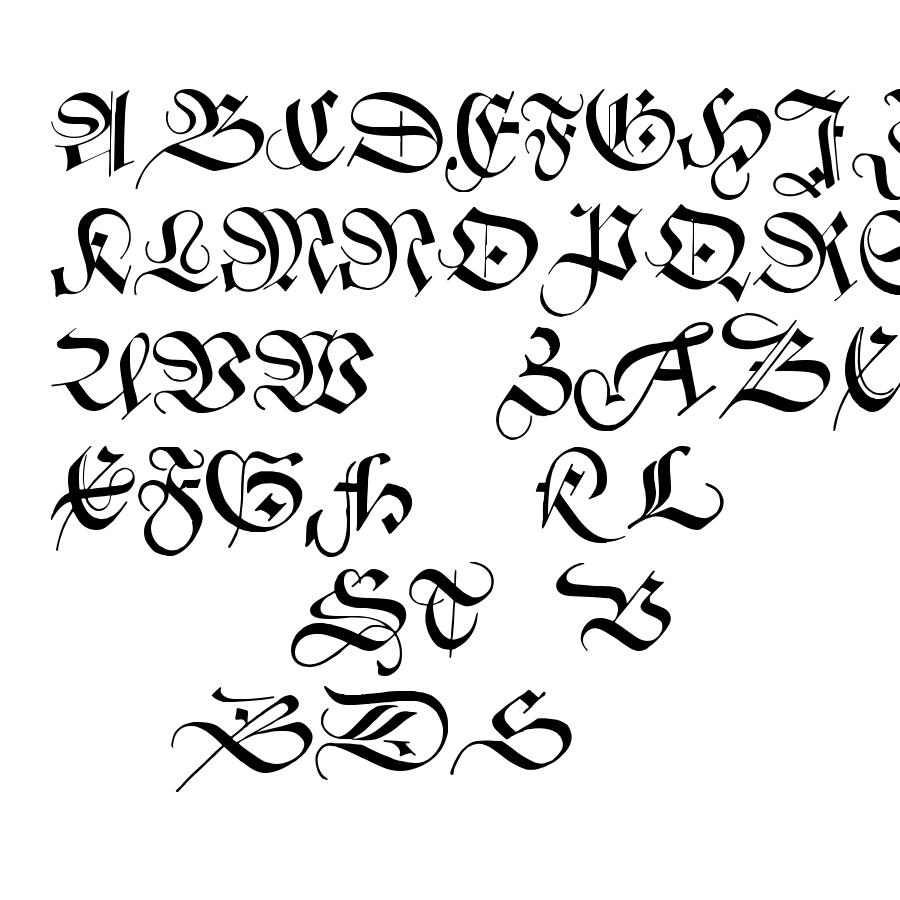 ABCDEFGHI
KLMNOPQRS
UVW ZABC
EFGH KL
ST V
BDS